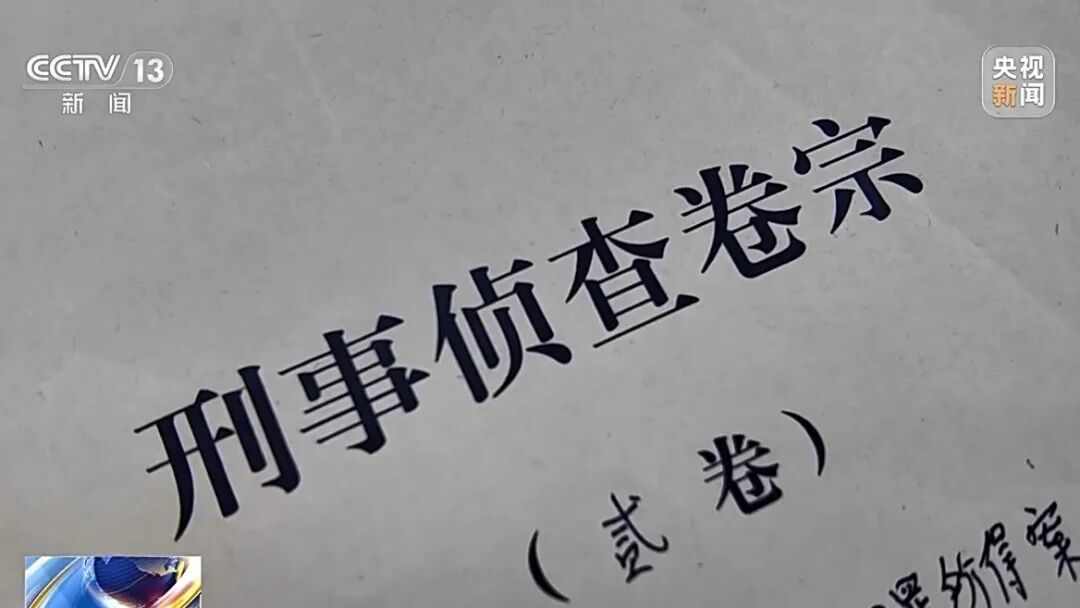 CCTV 13
新闻
央视
新闻
刑事侦查卷宗
（贰卷）
所得案